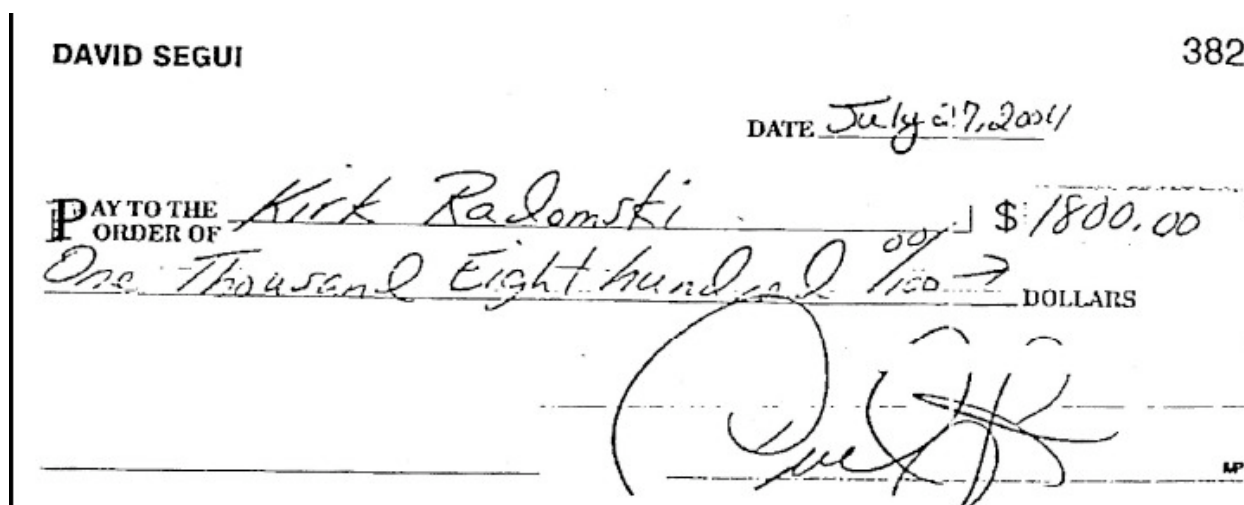 DAVID SEGUI
382
DATE July 27, 2004
PAY TO THE ORDER OF Kirk Radomski $ 1800.00
One Thousand Eight hundred 00/100 → DOLLARS
MP